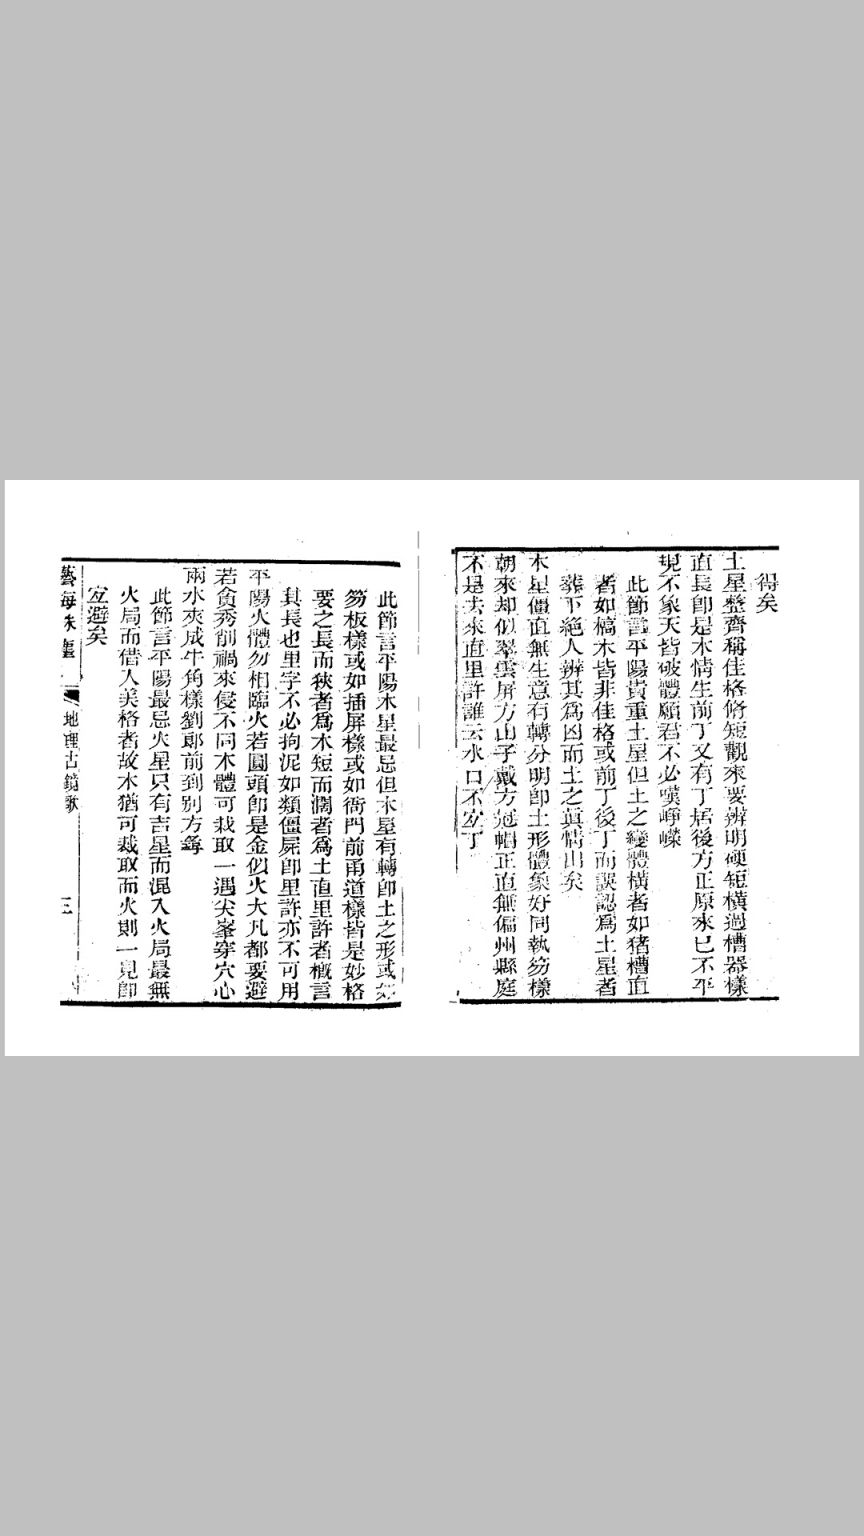 得矣
土星整齊稱佳格脩短觀來要辨明硬短橫過槽器樣
直長卽是木情生前丁又有丁居後方正原來已不平
現不象天皆破體願君不必嘆崢嶸
此節言平陽貴重土星但土之變體橫者如猪槽直
者如槁木皆非佳格或前丁後丁而誤認爲土星者
葬下絕人辨其爲凶而土之眞情出矣
木星僵直無生意有轉分明卽土形體象好同執笏樣
朝來却似翠雲屏方山子戴方冠帽正直無偏州縣庭
不是去來直里許誰云水口不宐丁
此節言平陽木星最忌但木星有轉卽土之形或如
笏板樣或如插屏樣或如衙門前甬道樣皆是妙格
要之長而狹者爲木短而濶者爲土直里許者槪言
其長也里字不必拘泥如類僵屍卽里許亦不可用
平陽火體勿相臨火若圓頭卽是金似火大凡都要避
若貪秀削禍來侵不同木體可裁取一遇尖峯穿穴心
兩水夾成牛角樣劉郞前到別方尋
此節言平陽最忌火星只有吉星而混入火局最無
火局而借人美格者故木猶可裁取而火則一見卽
宐避矣
藝海珠塵
地理古鏡歌
三